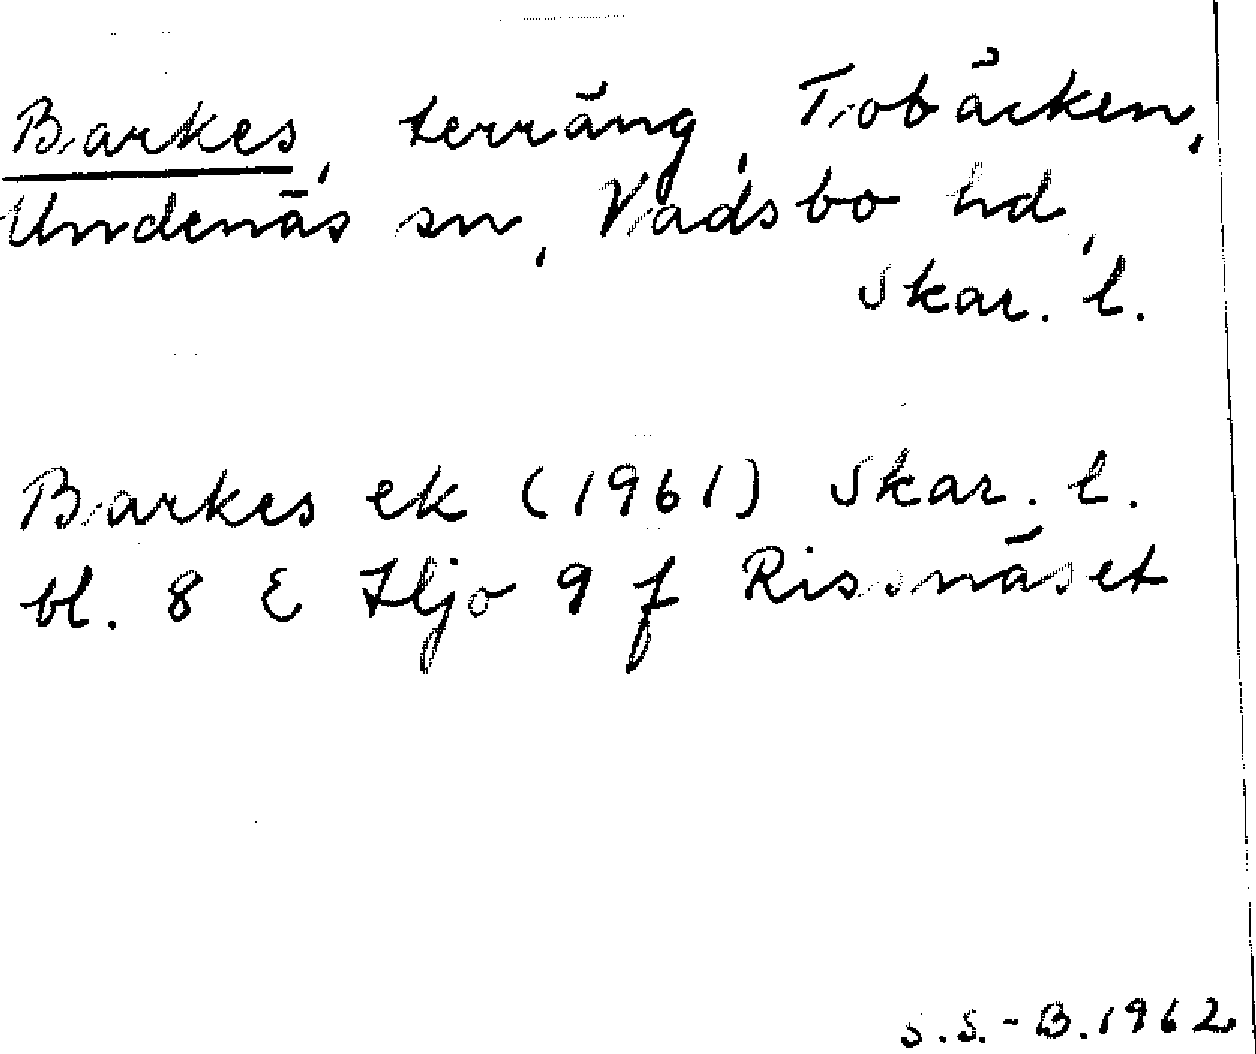 Barkes, terräng, Tobäcken,
Undenäs sn, Vadsbo hd,
Skar. l.
Barkes ek (1961) Skar. l.
bl. 8 E Hjo 9 f Rissnäset
S.S.-B. 1962